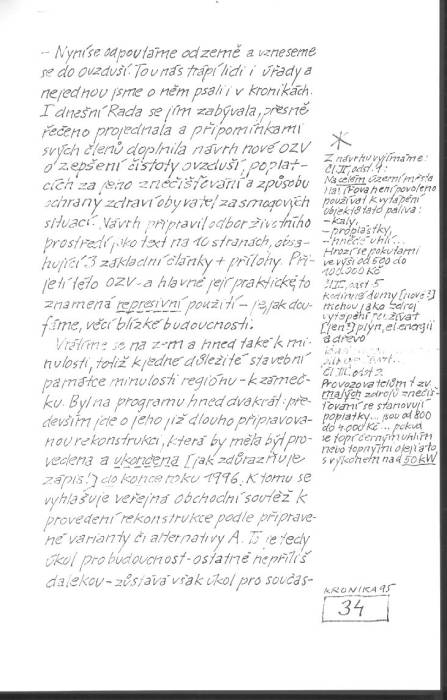 - Nyní se odpoutáme od země a vzneseme
se do ovzduší. To u nás trápí lidi i úřady a
nejednou jsme o něm psali i v kronikách.
I dnešní Rada se jím zabývala, přesně
řečeno projednala a připomínkami
svých členů doplnila návrh nové OZV
o zepšení čistoty ovzduší, poplat-
cích za jeho znečišťování a způsobu
ochrany zdraví obyvatel za smogových
situací. Návrh připravil odbor životního
prostředí jako text na 10 stranách, obsa-
hující 3 základní články + přílohy. Při-
jetí této OZV - a hlavně její praktické, to
znamená represivní použití - je, jak dou-
fáme, věcí blízké budoucnosti.
Vrátíme se na z-m a hned také k mi-
nulosti, totiž k jedné důležité stavební
památce minulosti regiónu - k zámeč-
ku. Byl na programu hned dvakrát: pře-
devším jde o jeho již dlouho připravova-
nou rekonstrukci, která by měla být pro-
vedena a ukončena [jak zdůrazňuje
zápis!] do konce roku 1996. K tomu se
vyhlašuje veřejná obchodní soutěž k
provedení rekonstrukce podle připrave-
né varianty či alternativy A. To je tedy
úkol pro budoucnost - ostatně nepříliš
dalekou - zůstává však úkol pro součas-
*
Z návrhu vyjímáme:
čl. II, odst. 4:
Na celém území města
není povoleno
používat k vytápění
objektů tato paliva:
- kaly,
- proplástky,
- hnědé uhlí...
Hrozí se pokutami
ve výši od 500 do
100.000 Kč
odst. 5
Rodinné domy [nové?]
mohou jako zdroj
vytápění používat
[jen?] plyn, el. energii
a dřevo
čl. III, odst. 2
Provozovatelům tzv.
malých zdrojů znečiš-
ťování se stanovují
poplatky... jsou od 800
do 4.000 Kč... pokud
se topí černým uhlím
nebo topnými oleji a to
s výkonem nad 50 kW
KRONIKA 95
34